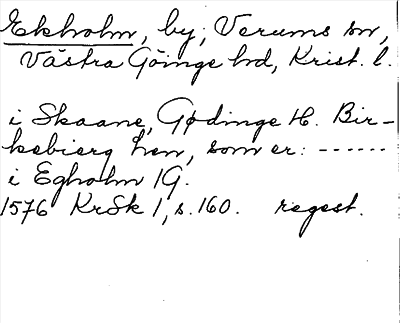 Ekholm, by, Verums sn,
Västra Göinge hd, Krist. l.
i Skaane, Gødinge H. Bir-
kebierg Len, som er: ------
i Egholm 1G.
1576 KrSk 1, s. 160. regest.